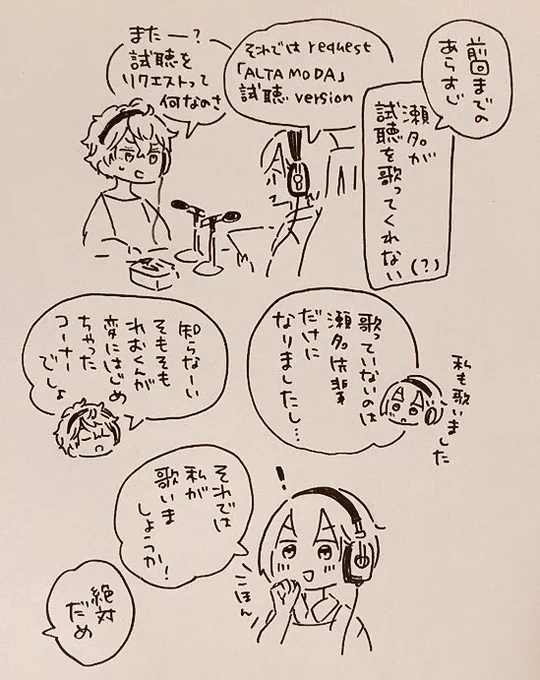 前回までの
あらすじ
瀬名が
試聴を歌ってくれない
(?)
それでは request
「ALTA MODA」
試聴 version
またー?
試聴を
リクエストって
何なのさ
歌っていないのは
瀬名先輩
だけに
なりましたし…
私も歌いました
知らなーい
そもそも
れおくんが
変にはじめ
ちゃった
コーナー
でしょ
!
それでは
私が
歌いま
しょうか!
こほん
絶対
だめ